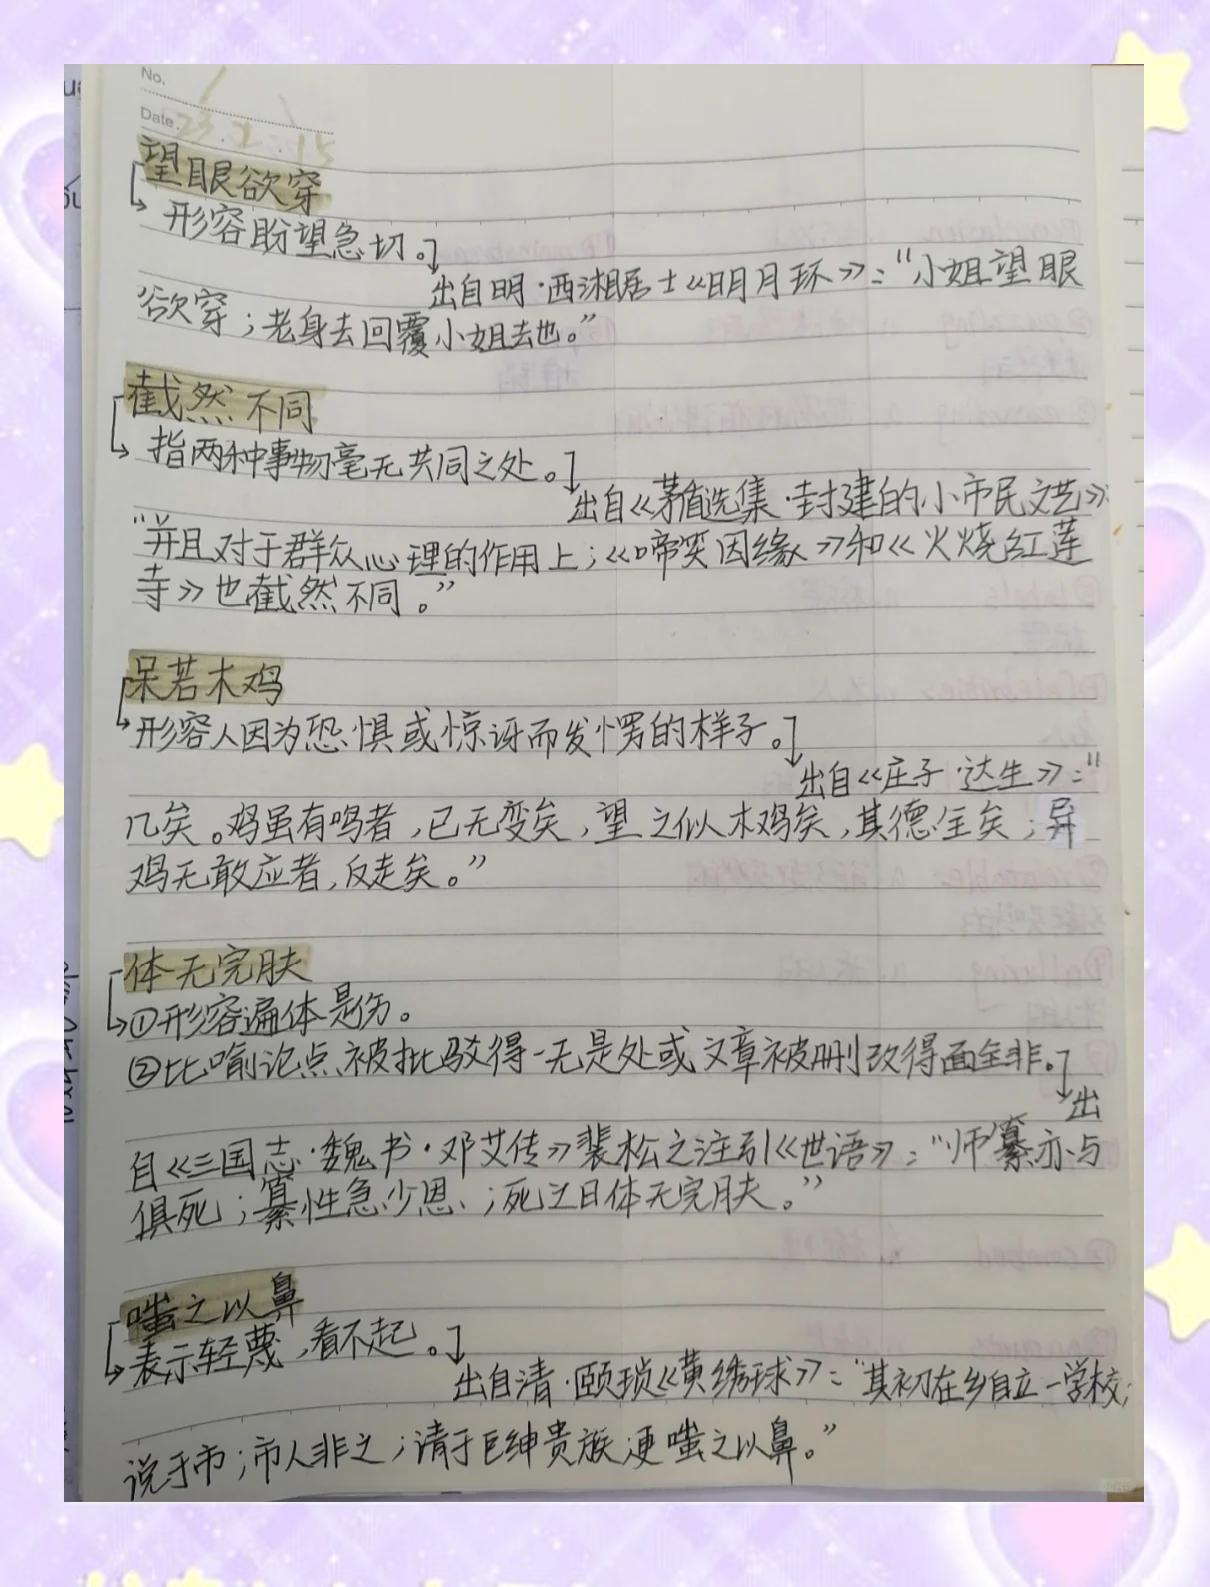 No.
Date. 23.2.15
望眼欲穿
形容盼望急切。
出自明·西湘居士《明月环》:“小姐望眼
欲穿;老身去回覆小姐去也。”
截然不同
指两种事物毫无共同之处。
出自《茅盾选集·封建的小市民文艺》:
“并且对于群众心理的作用上;《啼笑因缘》和《火烧红莲
寺》也截然不同。”
呆若木鸡
形容人因为恐惧或惊讶而发愣的样子。
出自《庄子·达生》:“
几矣。鸡虽有鸣者,已无变矣,望之似木鸡矣,其德全矣;异
鸡无敢应者,反走矣。”
体无完肤
①形容遍体是伤。
②比喻论点被批驳得一无是处或文章被删改得面全非。
出
自《三国志·魏书·邓艾传》裴松之注引《世语》:“师纂亦与
俱死;纂性急少恩、;死之日体无完肤。”
嗤之以鼻
表示轻蔑,看不起。
出自清·颐琐《黄绣球》:“其初在乡自立一学校;
说于市;市人非之;请于巨绅贵族;更嗤之以鼻。”